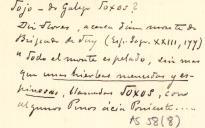 Tojo - do Galego TOXOS?
Diz Florez, acerca d'um monte da
Brigada de Tuy (Esp. Sagr. XXIII, 177)
« todo el monte es pelado, sin mas
que unas hierbas menudas y es-
pinosas, llamadas TOXOS, con
algunos Pinos ácia Poniente....
AS 58 (8)